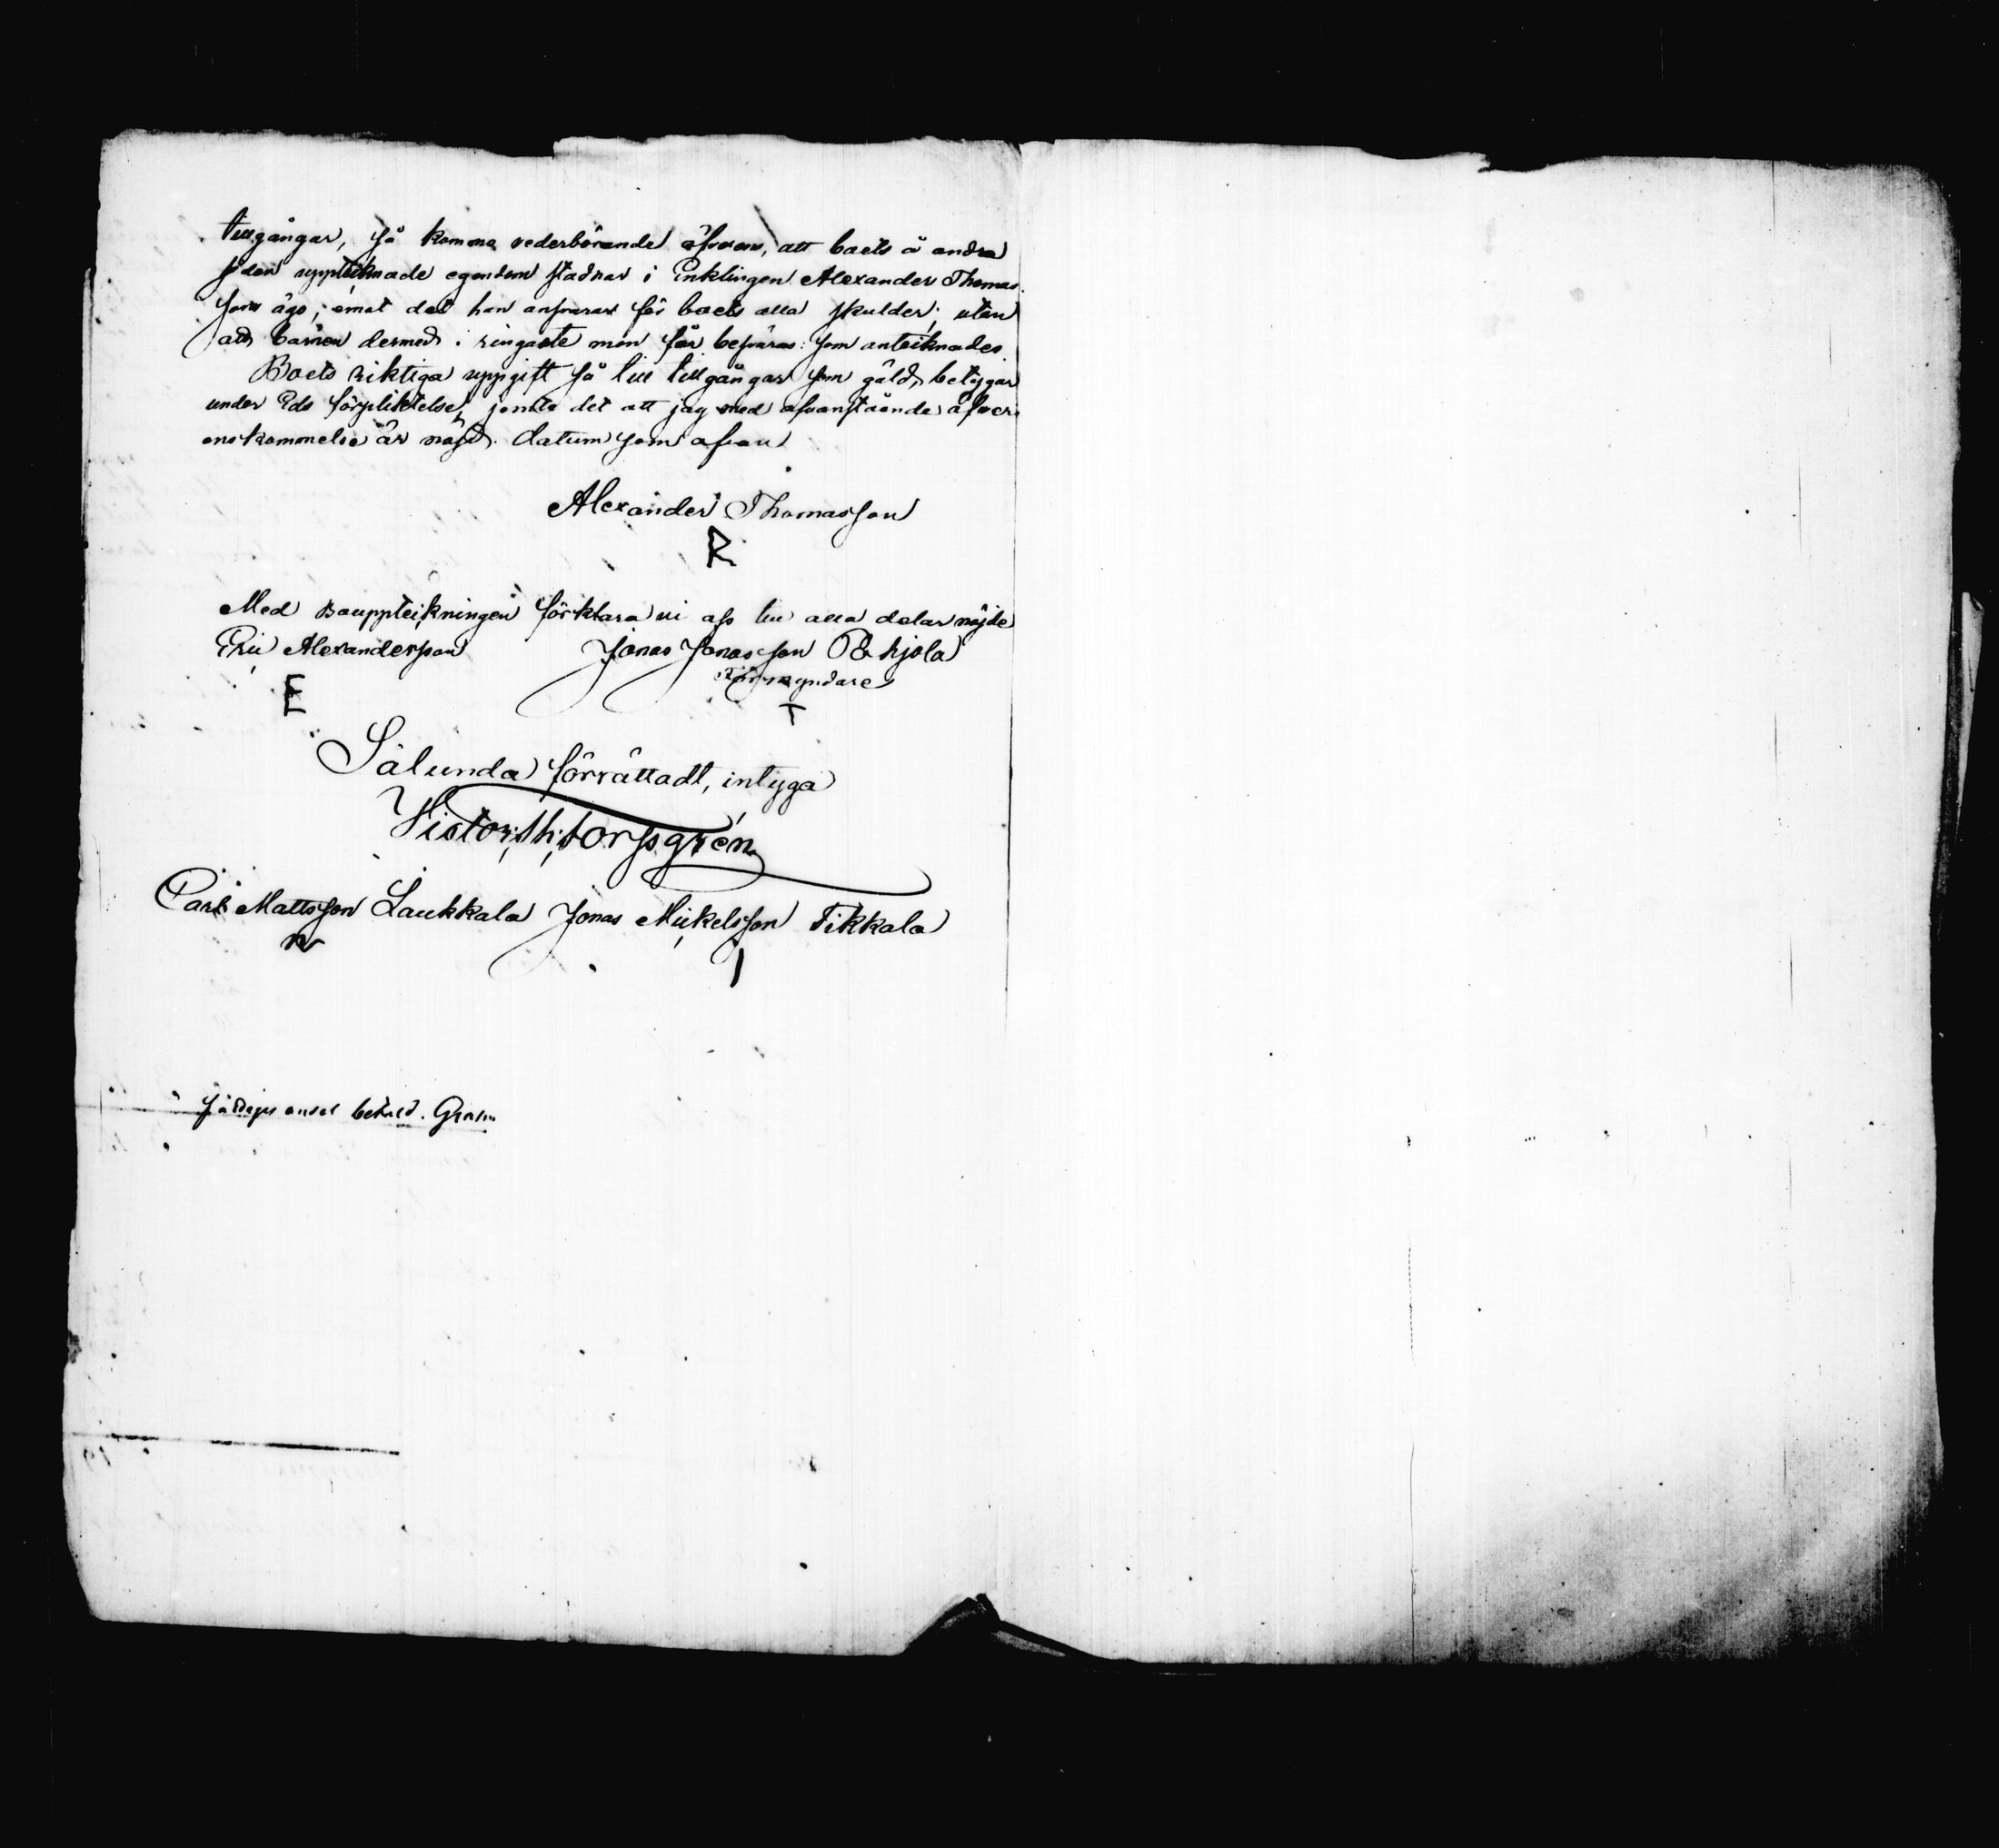 tillgångar, så komma vederbörande öfverens, att boets å andra
sidan uppteiknade egendom stadnar i Enklingen Alexander Thomas
sons ägo, emot det han ansvarar för boets alla skulder; utan
att barnen dermed i ringaste mon får besväras: som anteiknades.
Boets riktiga uppgift så till tillgångar som gäld, betygar
under Eds förpliktelse, jemte det att jag med ofvanstående öfver
enskommelse är nöjd. Datum som ofvan
Alexander Thomasson
R
Med Bouppteikningen förklara vi oss till alla delar nöjde
Eric Alexandersson Jonas Jonasson Pohjola
Förmyndare
E T
Sålunda förrättadt, intyga
Victor Th. Forssgrén
Carl Mattsson Laukkala Jonas Mickelsson Tikkala